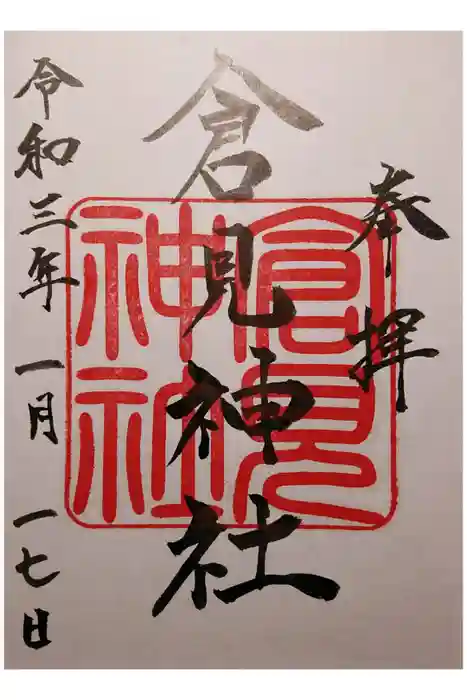 奉拝
倉見神社
倉見神社
令和三年一月一七日